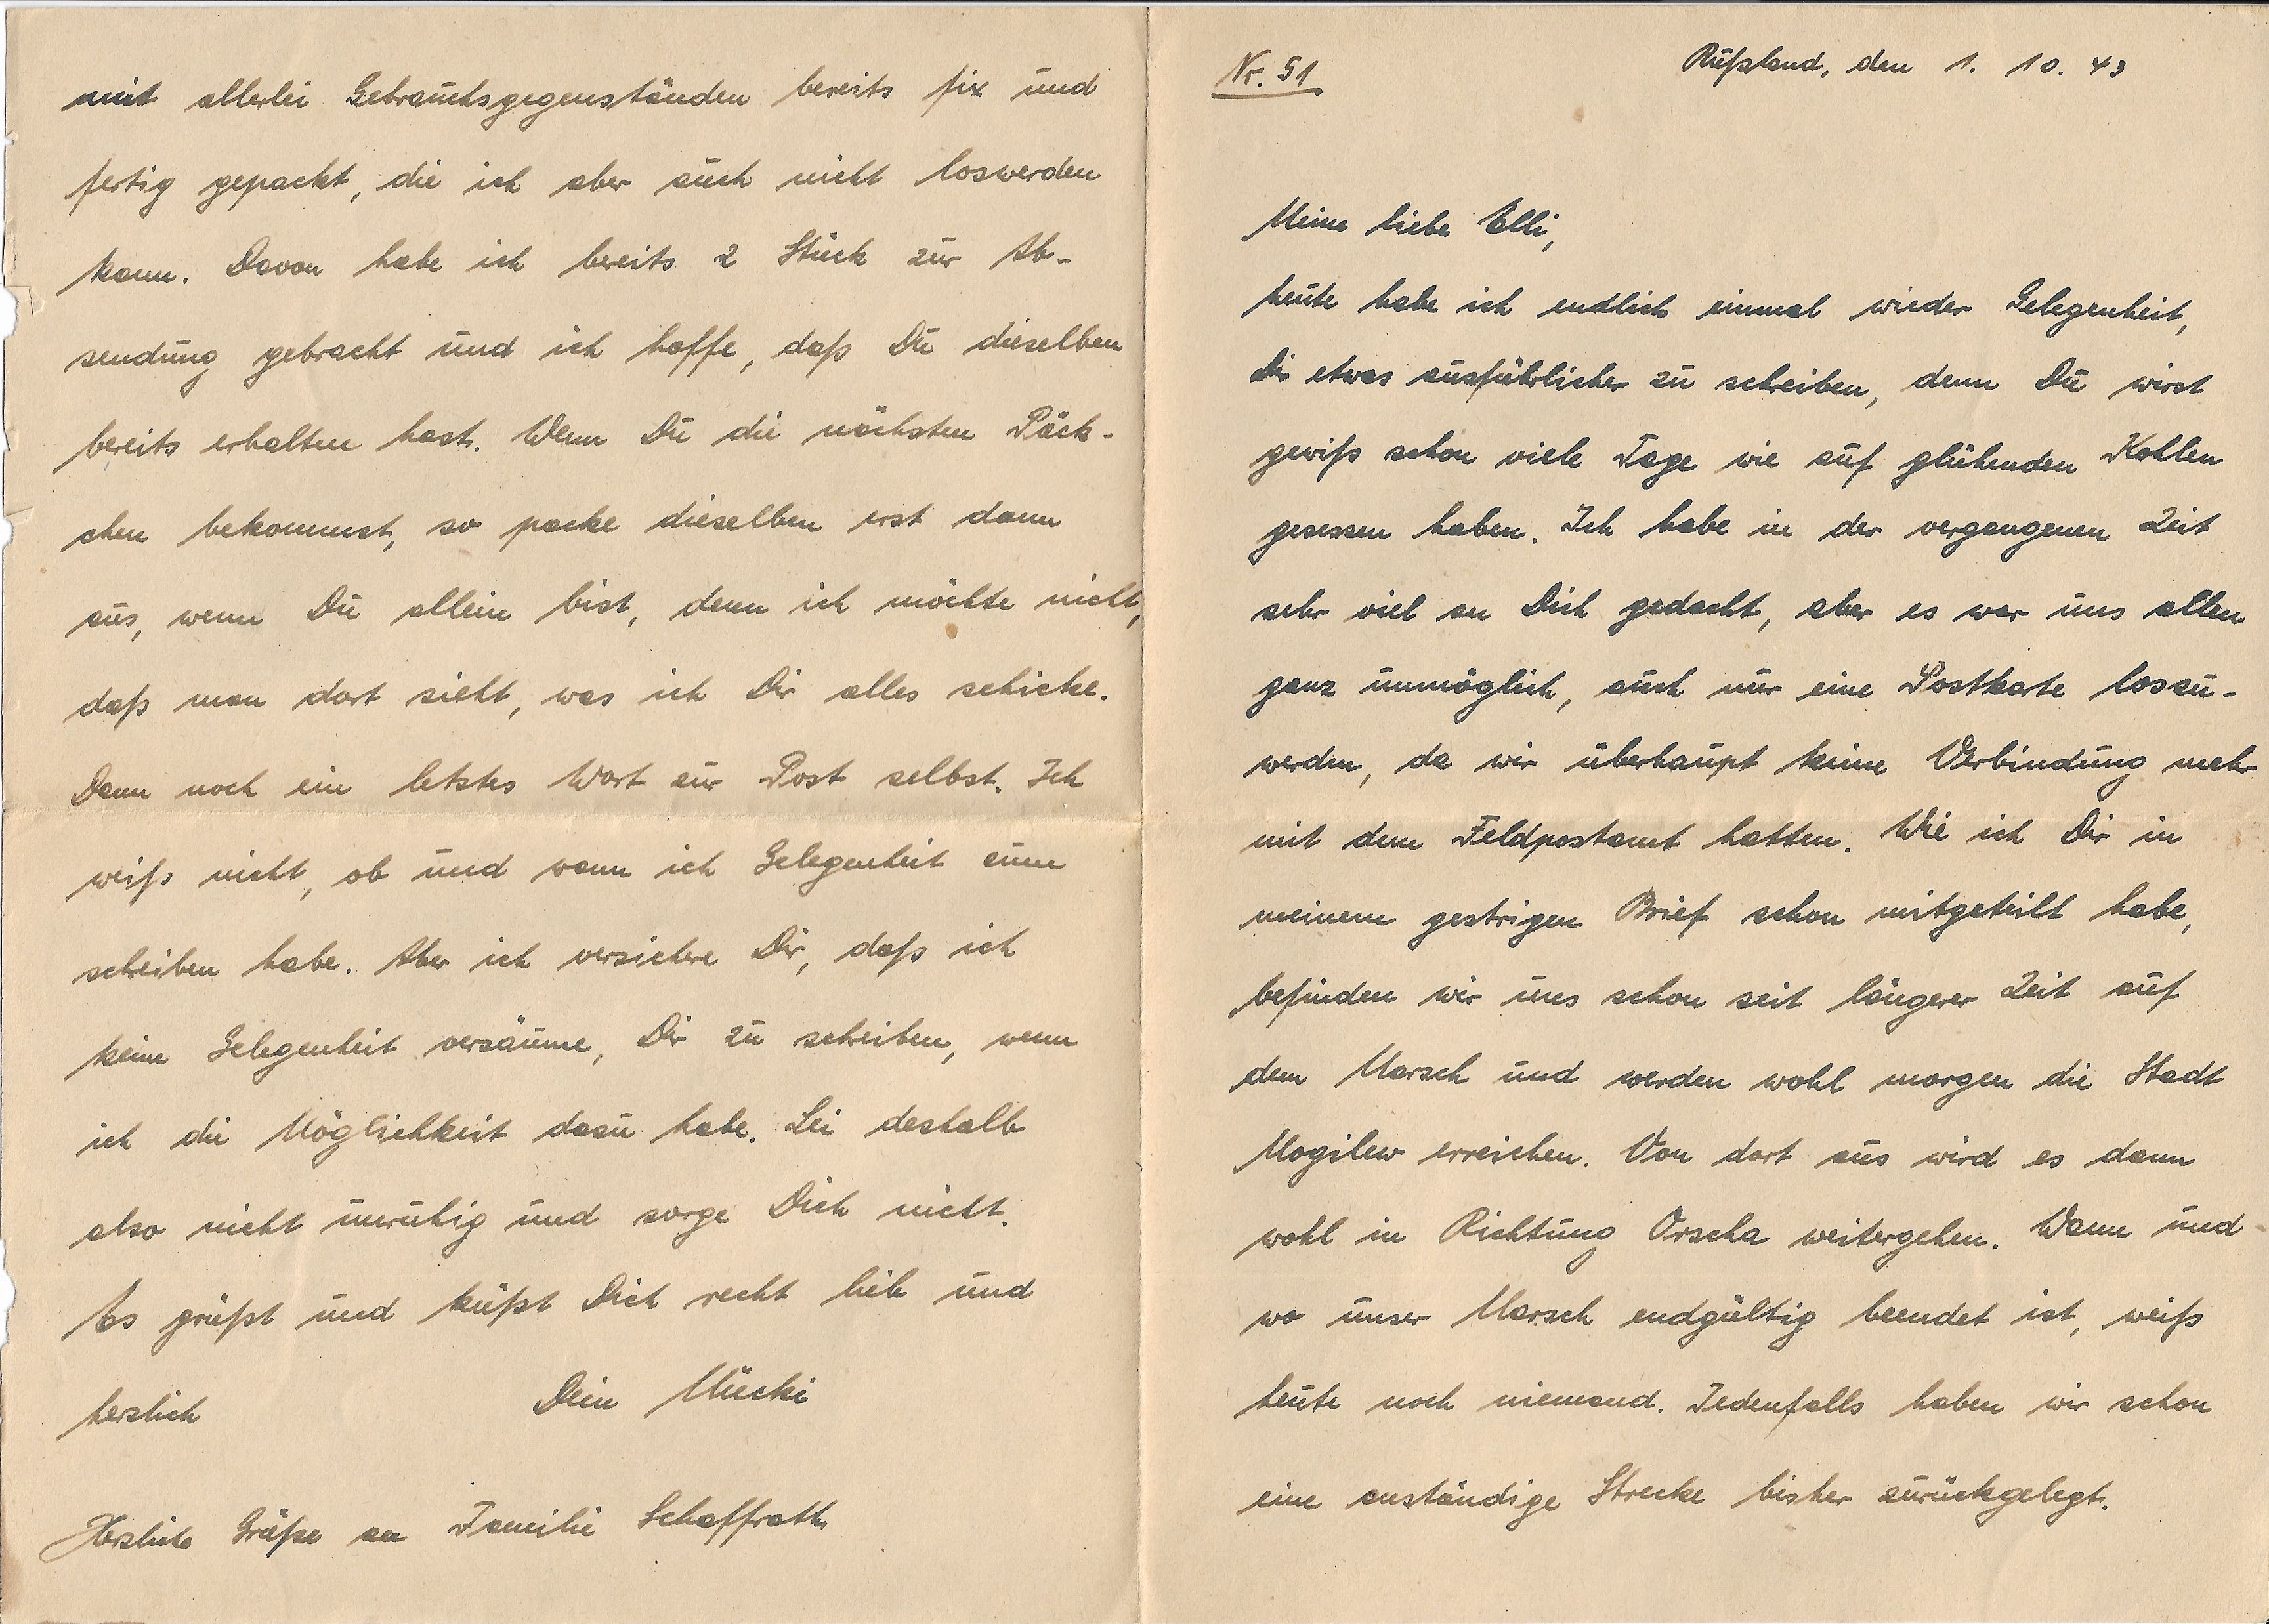 Nr. 51
Rußland, den 1. 10. 43
Meine liebe Elli,
heute habe ich endlich einmal wieder Gelegenheit,
Dir etwas ausführlicher zu schreiben, denn Du wirst
gewiß schon viele Tage wie auf glühenden Kohlen
gesessen haben. Ich habe in der vergangenen Zeit
sehr viel an Dich gedacht, aber es war uns allen
ganz unmöglich, auch nur eine Postkarte loszu-
werden, da wir überhaupt keine Verbindung mehr
mit dem Feldpostamt hatten. Wie ich Dir in
meinem gestrigen Brief schon mitgeteilt habe,
befinden wir uns schon seit längerer Zeit auf
dem Marsch und werden wohl morgen die Stadt
Mogilew erreichen. Von dort aus wird es dann
wohl in Richtung Orscha weitergehen. Wann und
wo unser Marsch endgültig beendet ist, weiß
heute noch niemand. Jedenfalls haben wir schon
eine anständige Strecke bisher zurückgelegt.
mit allerlei Gebrauchsgegenständen bereits fix und
fertig gepackt, die ich aber auch nicht loswerden
kann. Davon habe ich bereits 2 Stück zur Ab-
sendung gebracht und ich hoffe, daß Du dieselben
bereits erhalten hast. Wenn Du die nächsten Päck-
chen bekommst, so packe dieselben erst dann
aus, wenn Du allein bist, denn ich möchte nicht,
daß man dort sieht, was ich Dir alles schicke.
Dann noch ein letztes Wort zur Post selbst. Ich
weiß nicht, ob und wann ich Gelegenheit zum
schreiben habe. Aber ich versichere Dir, daß ich
keine Gelegenheit versäume, Dir zu schreiben, wenn
ich die Möglichkeit dazu habe. Sei deshalb
also nicht unruhig und sorge Dich nicht.
Es grüßt und küßt Dich recht lieb und
herzlich Dein Mücki
Herzliche Grüße an Familie Schaffrath